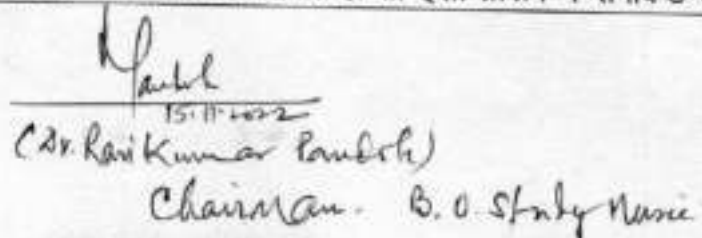 15-11-2022
(Dr. Ravi Kumar Pandole)
Chairman. B. O. Study Music